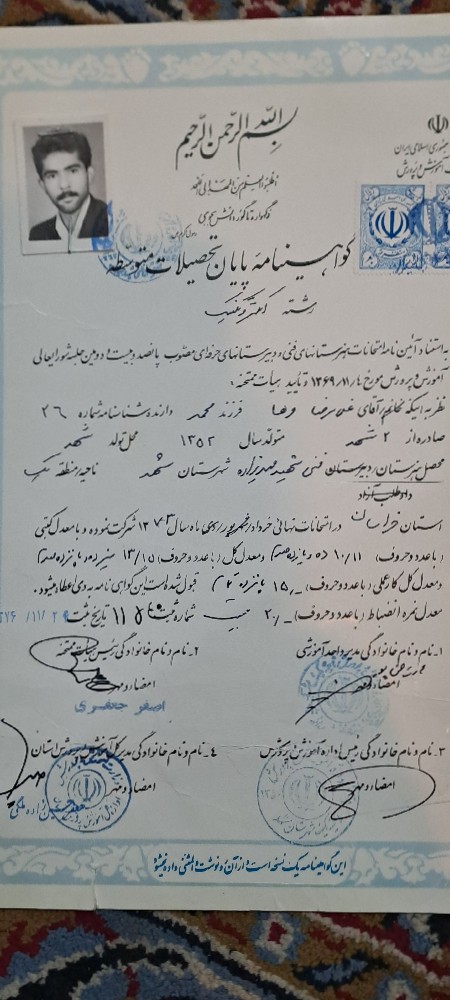 بسم الله الرحمن الرحیم
جمهوری اسلامی ایران
آموزش و پرورش
گواهینامه پایان تحصیلات متوسطه
رشته الکترونیک
به استناد آئین نامه امتحانات هنرستانهای فنی و دبیرستانهای حرفه‌ای مصوب پانصد و بیست و دومین جلسه شورایعالی
آموزش و پرورش مورخ ۱۳۶۹/۱۱/ و تأیید هیأت ممتحنه:
نظر به اینکه خانم/آقای علیرضا فرزند محمد دارنده شناسنامه شماره ۲۶
صادره از ۲ مشهد متولد سال ۱۳۵۲ محل تولد مشهد
محصل هنرستان/دبیرستان فنی شهید شهرستان مشهد ناحیه/منطقه یک
داوطلب آزاد
استان خراسان در امتحانات نهائی خرداد/شهریور/دی ماه سال ۱۳۷۳ شرکت نموده و با معدل کتبی
(با عدد و حروف) ۱۰/۱۱ ده و یازده صدم و معدل کل (با عدد و حروف) ۱۳/۱۵ سیزده و پانزده صدم
و معدل کل کار عملی (با عدد و حروف) ۱۵/- پانزده تمام قبول شده است این گواهی نامه به وی اعطا میشود.
معدل نمره انضباط (با عدد و حروف) ۲۰/- بیست شماره ثبت تاریخ ثبت
۱- نام و نام خانوادگی مدیر واحد آموزشی
امضاء و مهر
۲- نام و نام خانوادگی رئیس هیأت ممتحنه
امضاء و مهر
اصغر جعفری
۳- نام و نام خانوادگی رئیس اداره آموزش و پرورش
امضاء و مهر
۴- نام و نام خانوادگی مدیرکل آموزش و پرورش استان
امضاء و مهر
این گواهینامه یک نسخه است و از آن رونوشت و المثنی داده نمیشود